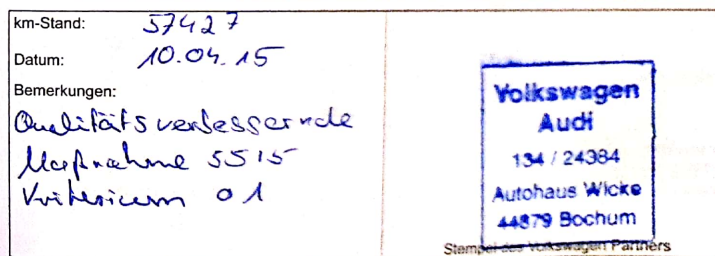 km-Stand: 57427
Datum: 10.04.15
Bemerkungen:
Qualitätsverbessernde
Maßnahme 5515
Kriterium 01
Volkswagen
Audi
134 / 24384
Autohaus Wicke
44879 Bochum
Stempel des Volkswagen Partners